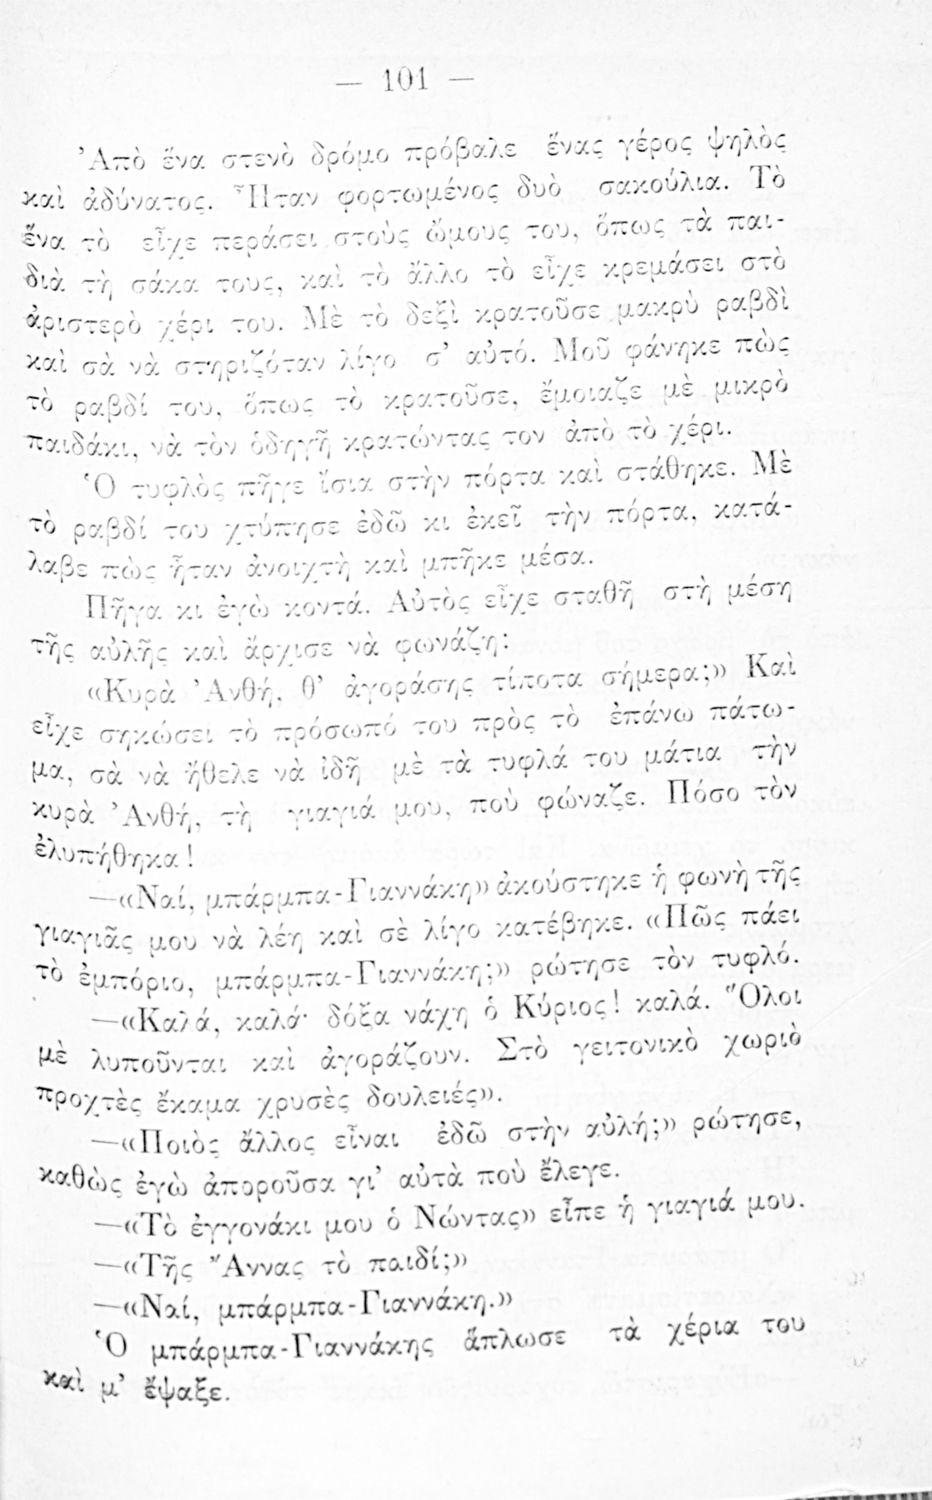 — 101 —
Ἀπὸ ἕνα στενὸ δρόμο πρόβαλε ἕνας γέρος ψηλὸς
καὶ ἀδύνατος. Ἦταν φορτωμένος δυὸ σακούλια. Τὸ
ἕνα τὸ εἶχε περάσει στοὺς ὤμους του, ὅπως τὰ παι-
διὰ τὴ σάκα τους, καὶ τὸ ἄλλο τὸ εἶχε κρεμάσει στὸ
ἀριστερὸ χέρι του. Μὲ τὸ δεξὶ κρατοῦσε μακρὺ ραβδὶ
καὶ σὰ νὰ στηριζόταν λίγο σ’ αὐτό. Μοῦ φάνηκε πὼς
τὸ ραβδί του, ὅπως τὸ κρατοῦσε, ἔμοιαζε μὲ μικρὸ
παιδάκι, νὰ τὸν ὁδηγῆ κρατώντας τον ἀπὸ τὸ χέρι.
Ὁ τυφλὸς πῆγε ἴσια στὴν πόρτα καὶ στάθηκε. Μὲ
τὸ ραβδί του χτύπησε ἐδῶ κι ἐκεῖ τὴν πόρτα, κατά-
λαβε πὼς ἦταν ἀνοιχτὴ καὶ μπῆκε μέσα.
Πῆγα κι ἐγὼ κοντά. Αὐτὸς εἶχε σταθῆ στὴ μέση
τῆς αὐλῆς καὶ ἄρχισε νὰ φωνάζη:
«Κυρὰ Ἀνθή, θ’ ἀγοράσης τίποτα σήμερα;» Καὶ
εἶχε σηκώσει τὸ πρόσωπό του πρὸς τὸ ἐπάνω πάτω-
μα, σὰ νὰ ἤθελε νὰ ἰδῆ μὲ τὰ τυφλά του μάτια τὴν
κυρὰ Ἀνθή, τὴ γιαγιά μου, ποὺ φώναζε. Πόσο τὸν
ἐλυπήθηκα!
—«Ναί, μπάρμπα-Γιαννάκη» ἀκούστηκε ἡ φωνὴ τῆς
γιαγιᾶς μου νὰ λέη καὶ σὲ λίγο κατέβηκε. «Πῶς πάει
τὸ ἐμπόριο, μπάρμπα-Γιαννάκη;» ρώτησε τὸν τυφλό.
—«Καλά, καλά· δόξα νάχη ὁ Κύριος! καλά. Ὅλοι
μὲ λυποῦνται καὶ ἀγοράζουν. Στὸ γειτονικὸ χωριὸ
προχτὲς ἔκαμα χρυσὲς δουλειές».
—«Ποιὸς ἄλλος εἶναι ἐδῶ στὴν αὐλή;» ρώτησε,
καθὼς ἐγὼ ἀποροῦσα γι’ αὐτὰ ποὺ ἔλεγε.
—«Τὸ ἐγγονάκι μου ὁ Νώντας» εἶπε ἡ γιαγιά μου.
—«Τῆς Ἄννας τὸ παιδί;»
—«Ναί, μπάρμπα-Γιαννάκη.»
Ὁ μπάρμπα-Γιαννάκης ἅπλωσε τὰ χέρια του
καὶ μ’ ἔψαξε.